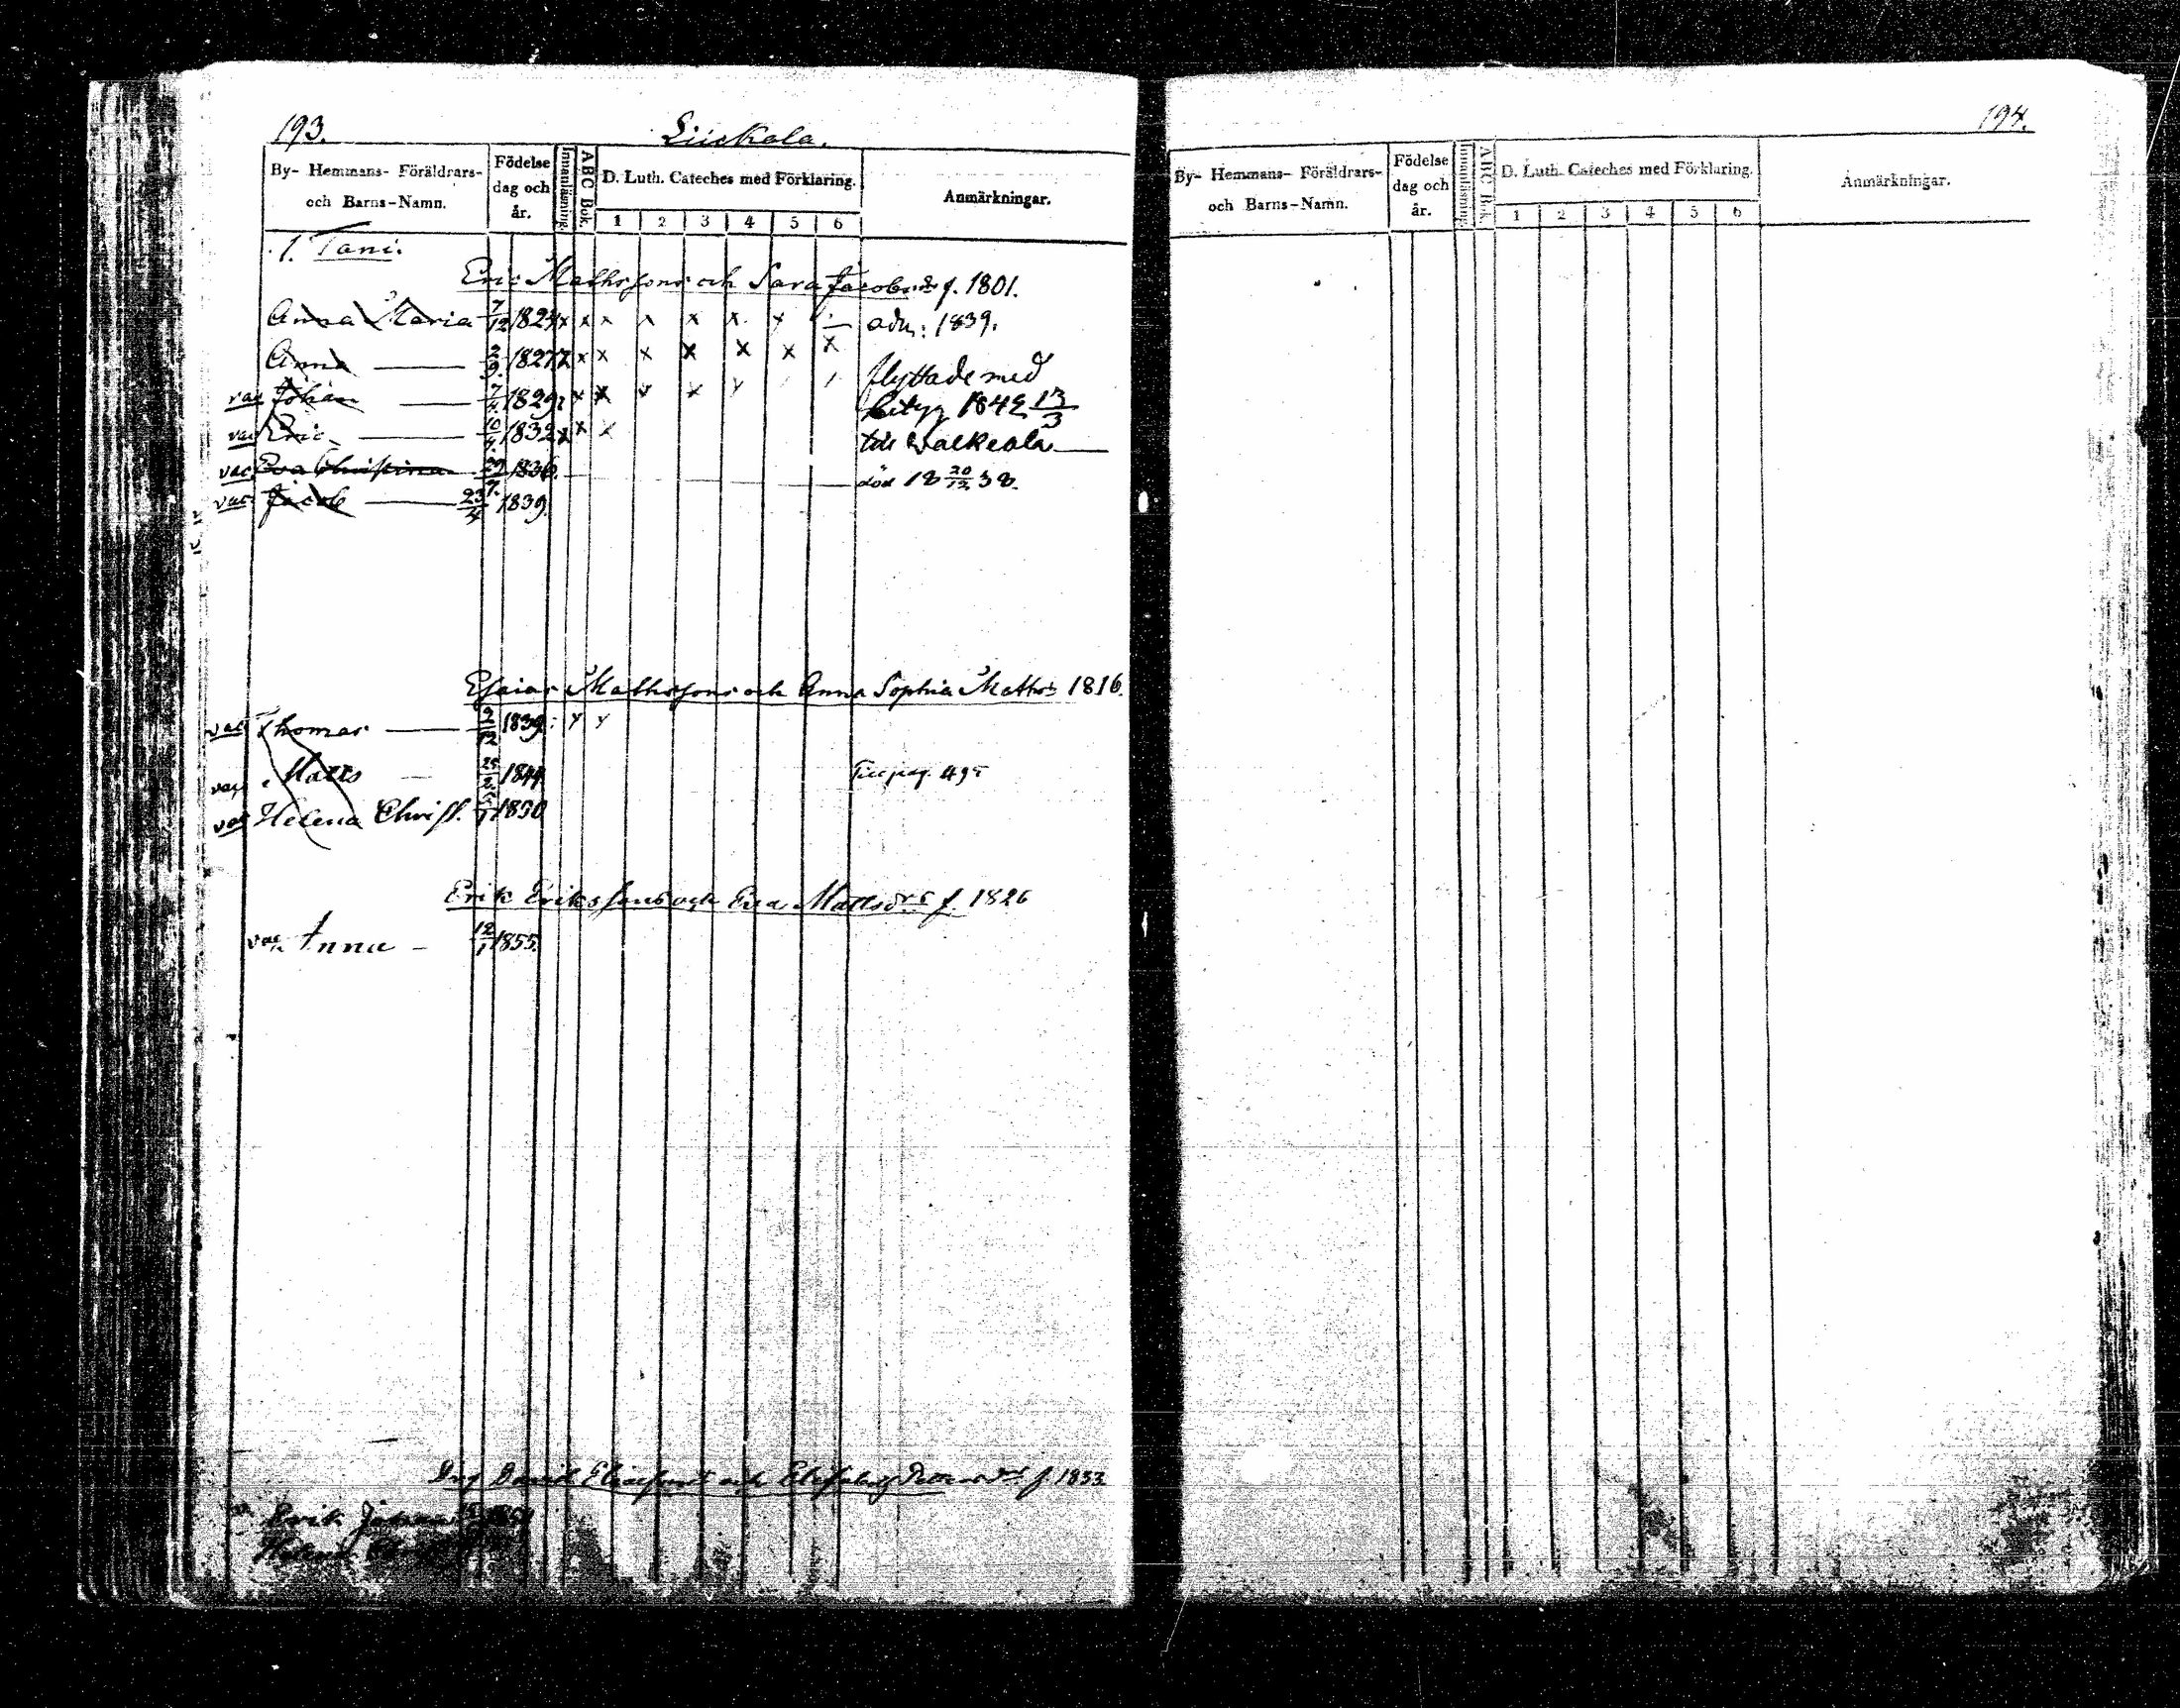 193.
Liickala.
By- Hemmans- Föräldrars- och Barns-Namn.
Födelse dag och år.
Innanläsning.
ABC Bok.
D. Luth. Cateches med Förklaring.
1 2 3 4 5 6
Anmärkningar.
1. Tani.
Eric Mathssons och Sara Jacobsdr f. 1801.
Anna Maria 7/12 1824 x x x x x x x adm: 1839.
Anna — 2/9 1827 x x x x x x x x
flyttade med
vac Johan — 7/4 1829 x x x x x
betyg 1842 13/3
vac Eric — 10/4 1832 x x x
till Walkeala —
vac Eva Christina 22/7 1836. död 18 20/12 38.
vac Jacob — 23/4 1839.
Esaias Mathssons och Anna Sophia Mattsd 1816.
vac Thomas — 9/12 1839
vac Matts — 25/2 1844 Till pag. 495
vac Helena Christ. 1850
Erik Erikssons och Eva Mattsdr f. 1826
vac Anna — 12/1 1855.
David och f 1833
Erik Johan
Helena
194.
By- Hemmans- Föräldrars- och Barns-Namn.
Födelse dag och år.
Innanläsning.
ABC Bok.
D. Luth. Cateches med Förklaring.
1 2 3 4 5 6
Anmärkningar.